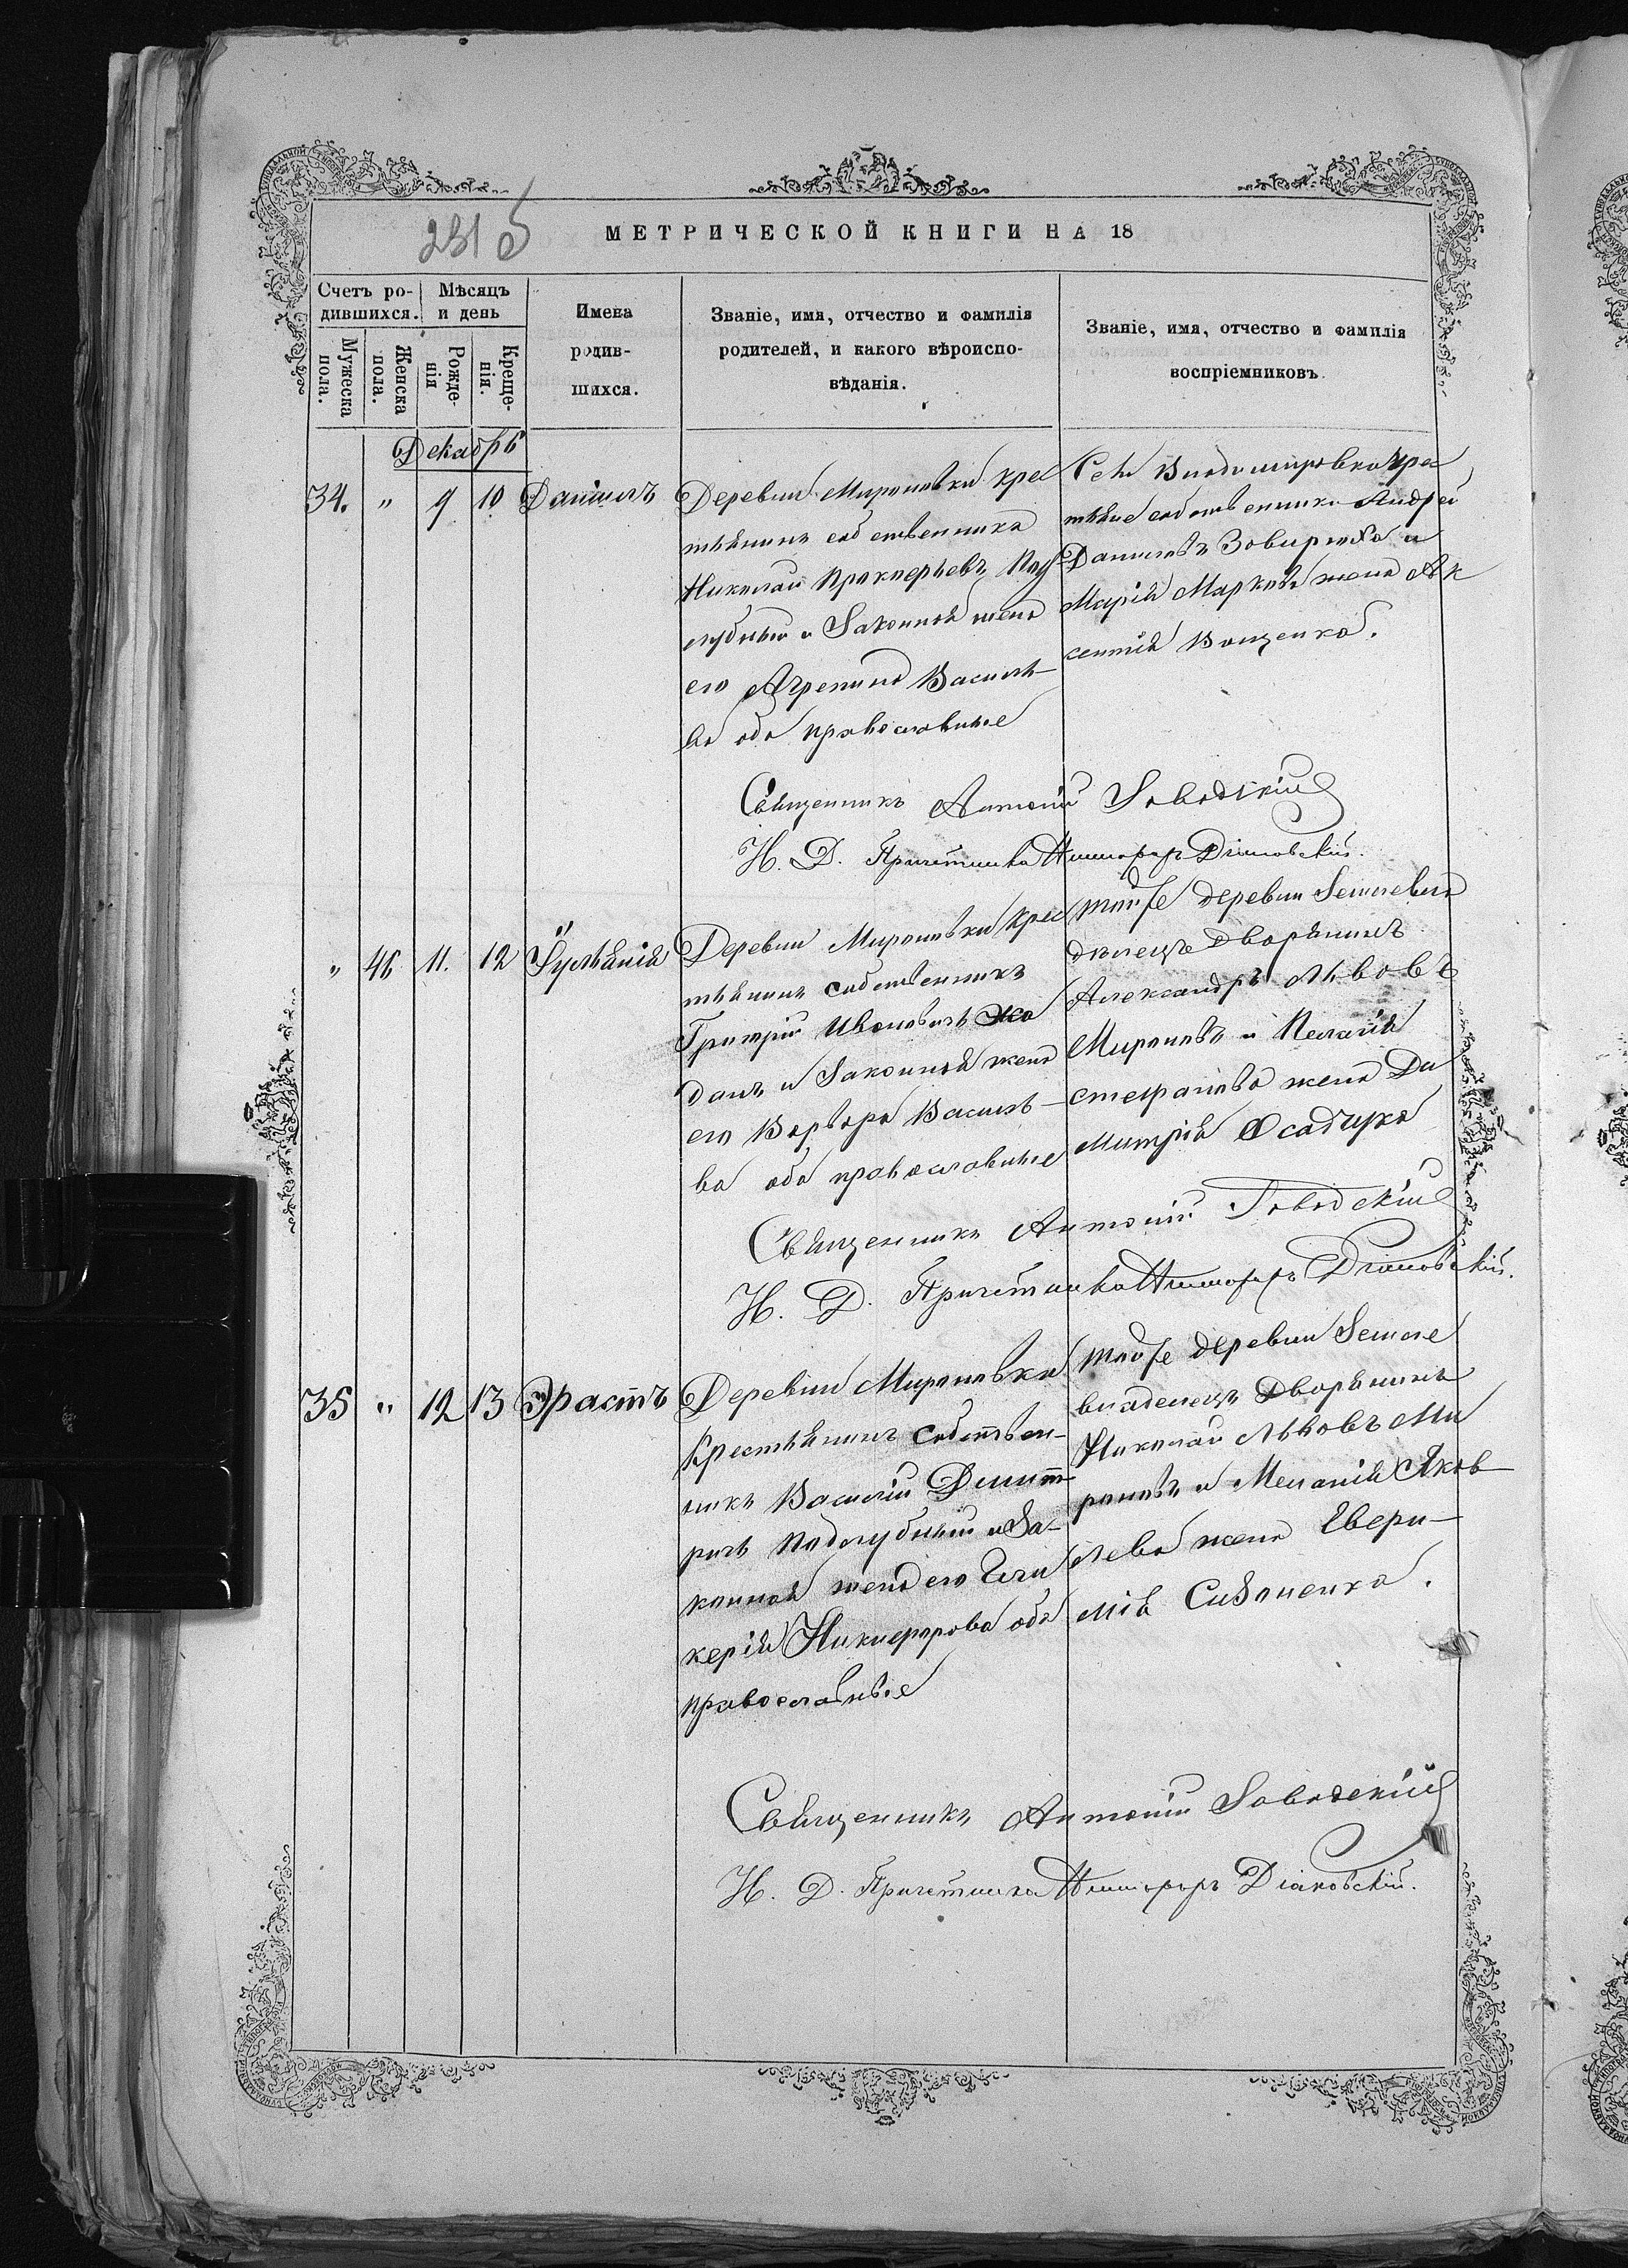 231 б
МЕТРИЧЕСКОЙ КНИГИ НА 18
Счетъ ро-
дившихся.
Мѣсяцъ
и день
Мужеска
пола.
Женска
пола.
Рожде-
нія
Креще-
нія.
Имена
родив-
шихся.
Званіе, имя, отчество и фамилія
родителей, и какого вѣроиспо-
вѣданія.
Званіе, имя, отчество и фамилія
воспріемниковъ.
Декабрь
34. " 9 10 Даніилъ
Деревни Мироновки крес
тьянинъ собственника
Николай Прокпоріевъ Под
лубный и Законной жена
его Агрепина Василь-
ва оба православные
Села Владимировка крес
тьяне собственники Андрей
Даниловъ Зовирюха и
Марія Маркова жена Ав
ксентія Ващенка.
Священникъ Антоній Заводскій
И. Д. Причетника Никифоръ Діаковскій.
" 46 11. 12 Іуліанія
Деревни Мироновки крес
тьянинъ собственникъ
Григорій Ивановичъ Жо
данъ и Законной жена
его Варвара Василь-
ва оба православные
тойже деревни Землевла
дѣлецъ Дворянинъ
Александръ Львовъ
Мироновъ и Пелагія
Стефанова жена Ди
митрія Осадчука
Священникъ Антоній Заводскій
И. Д. Причетника Никифоръ Діаковскій.
35 " 12 13 Эрастъ
Деревни Мироновки
Крестьянинъ собствен-
никъ Василій Димит
ричъ Подлубный и За-
конной жена его Гли
керія Никифорова оба
православные
тойже деревни Землев
владелецъ Дворянинъ
Николай Львовъ Ми
роновъ и Меланія Яков
лева жена Ефри-
мія Сизоненка.
Священникъ Антоній Заводскій
И. Д. Причетника Никифоръ Діаковскій.